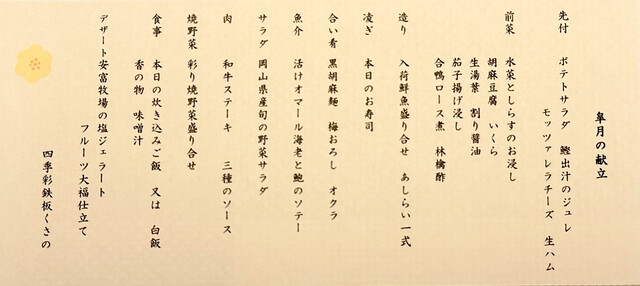 皐月の献立
先付　ポテトサラダ　鰹出汁のジュレ
モッツァレラチーズ　生ハム
前菜　水菜としらすのお浸し
胡麻豆腐　いくら
生湯葉　割り醤油
茄子揚げ浸し
合鴨ロース煮　林檎酢
造り　入荷鮮魚盛り合せ　あしらい一式
凌ぎ　本日のお寿司
合い肴　黒胡麻麺　梅おろし　オクラ
魚介　活けオマール海老と鮑のソテー
サラダ　岡山県産旬の野菜サラダ
肉　和牛ステーキ　三種のソース
焼野菜　彩り焼野菜盛り合せ
食事　本日の炊き込みご飯　又は　白飯
香の物　味噌汁
デザート　安富牧場の塩ジェラート
フルーツ大福仕立て
四季彩鉄板くさの